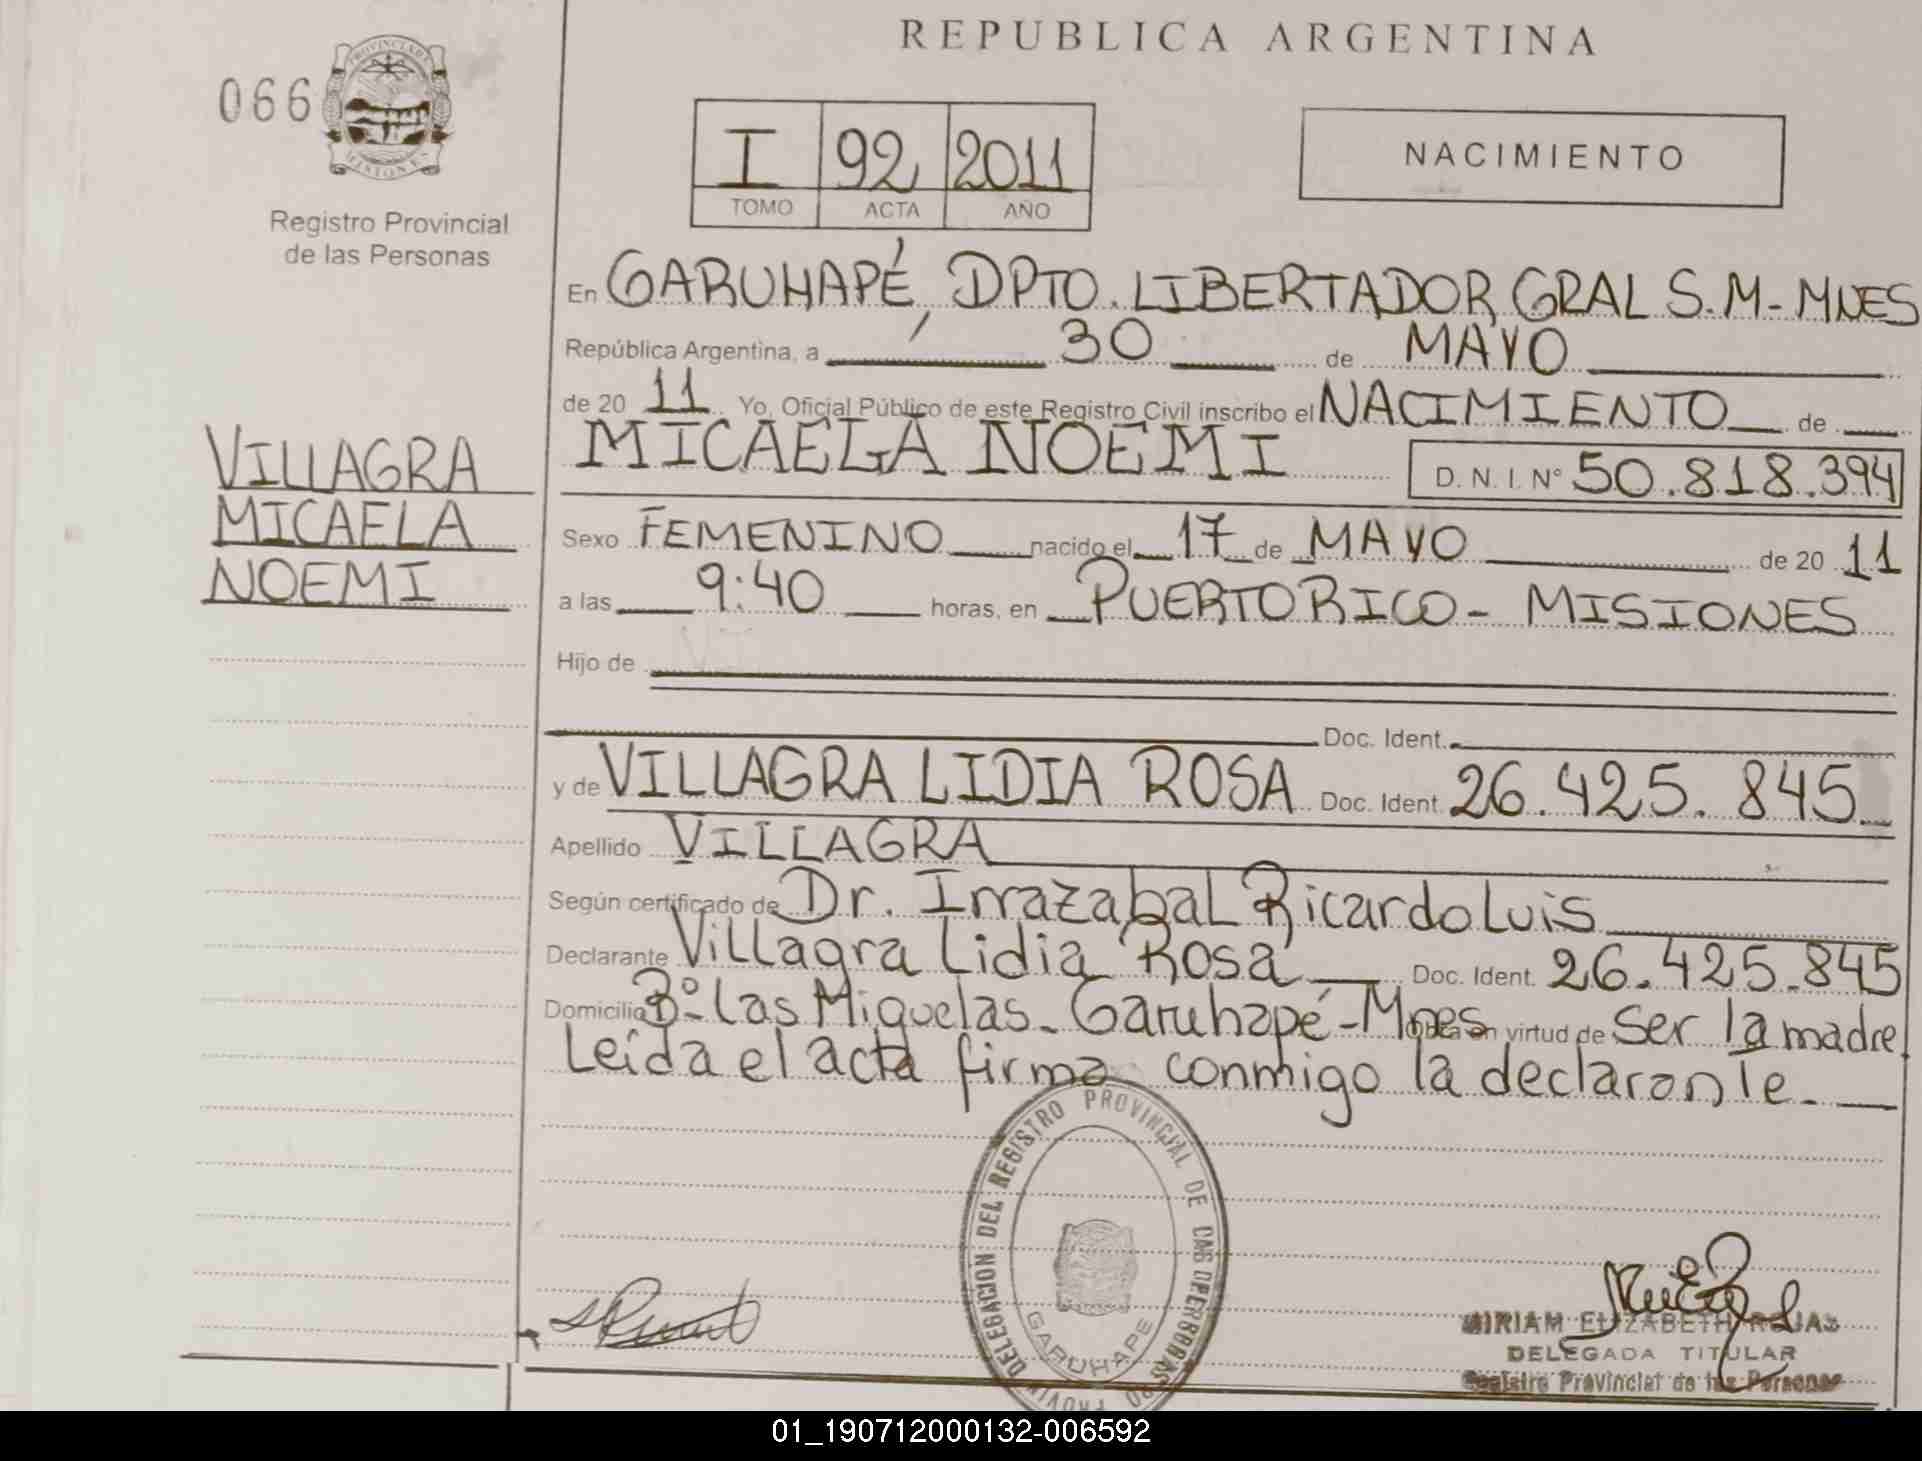 REPUBLICA ARGENTINA
066
PROVINCIA DE
MISIONES
Registro Provincial
de las Personas
I 92 2011
TOMO ACTA AÑO
NACIMIENTO
En GARUHAPÉ, DPTO. LIBERTADOR GRAL S.M-MNES
República Argentina, a 30 de MAYO
de 20 11 Yo, Oficial Público de este Registro Civil inscribo el NACIMIENTO de
MICAELA NOEMI D.N.I. Nº 50.818.394
VILLAGRA
MICAELA
NOEMI
Sexo FEMENINO nacido el 17 de MAYO de 20 11
a las 9:40 horas, en PUERTO RICO - MISIONES
Hijo de
Doc. Ident.
y de VILLAGRA LIDIA ROSA Doc. Ident. 26.425.845
Apellido VILLAGRA
Según certificado de Dr. Irrazabal Ricardo Luis
Declarante Villagra Lidia Rosa Doc. Ident. 26.425.845
Domicilio Bº Las Miguelas - Garuhapé - Mnes Obra en virtud de ser la madre.
Leída el acta firma conmigo la declarante.
DELEGACION DEL REGISTRO PROVINCIAL DE LAS PERSONAS
GARUHAPE
MIRIAM ELIZABETH ROJAS
DELEGADA TITULAR
Registro Provincial de las Personas
01_190712000132-006592